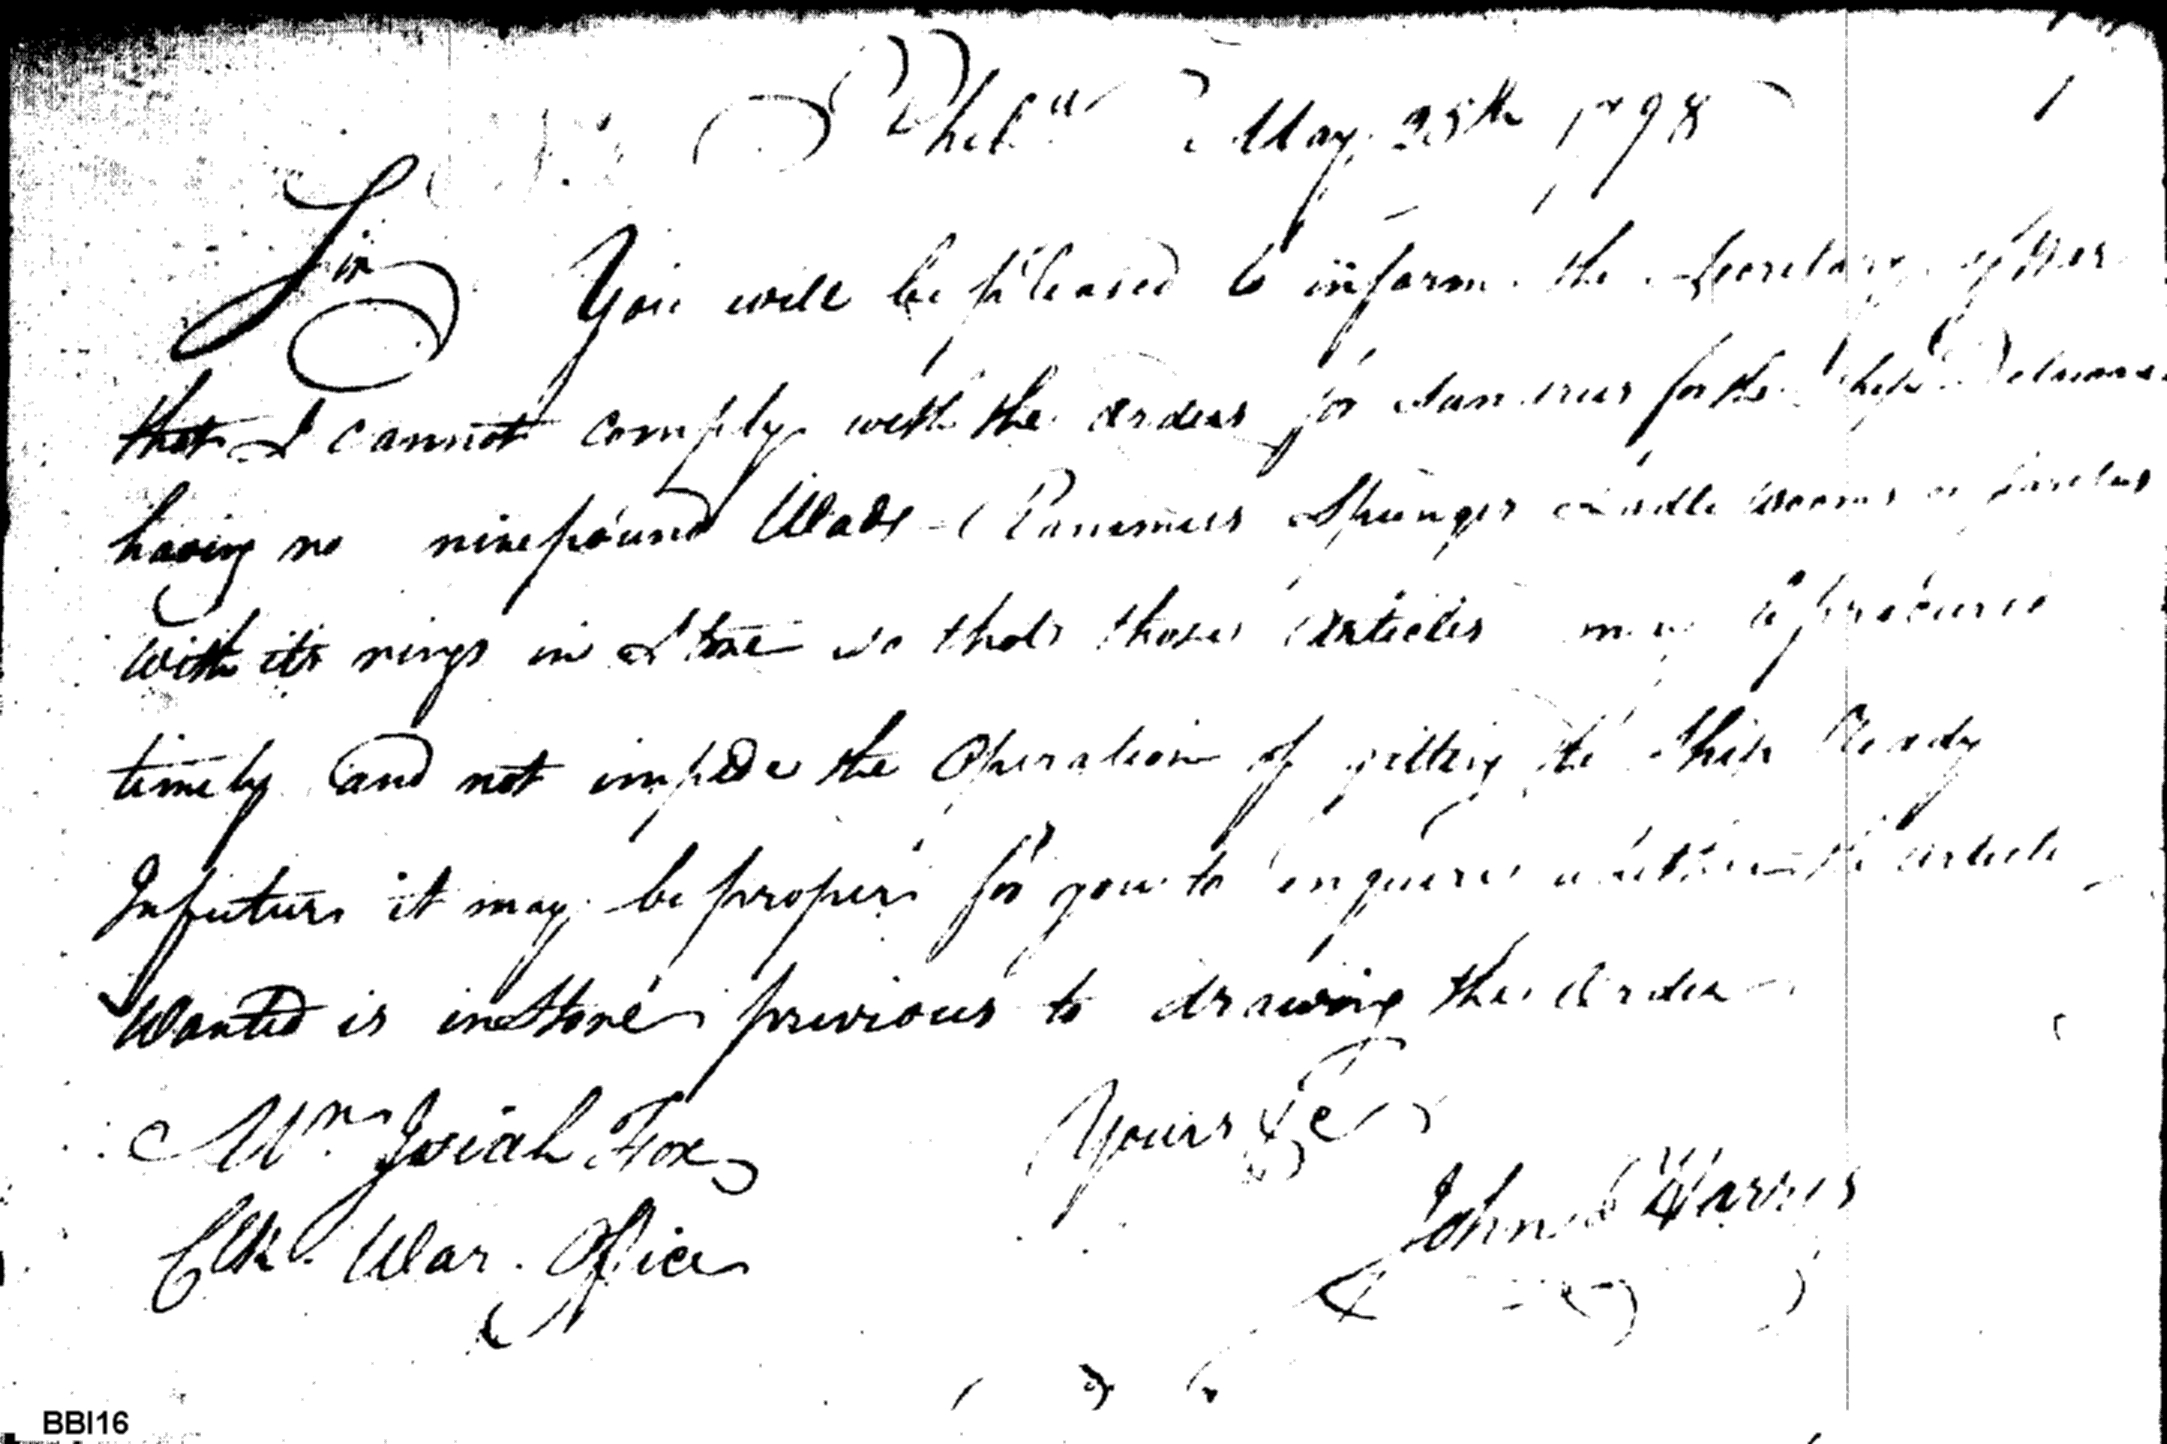 Phila May 25th 1798
Sir You will be pleased to inform the Secretary of War
that I cannot comply with the orders for Sundries for the Ship Delaware
having no ninepound Wads Rammers Spunges Ladle worms or
with its rings in Store so that those Articles may be procured
timely and not impede the Operation of gitting the Ship Ready
In future it may be proper for you to enquire whether the article
Wanted is in Store previous to drawing the Order
Mr. Josiah Fox Yours &c
Clk War Office John Harris
BBI16